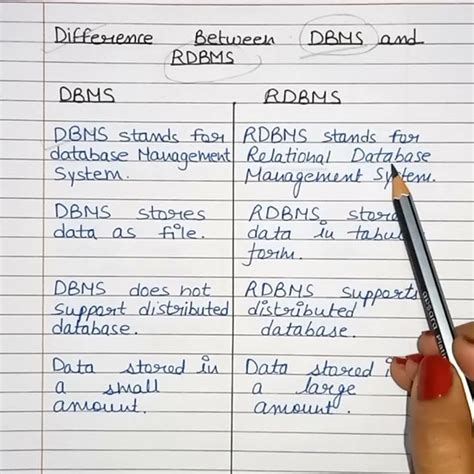 Difference Between DBMS and
RDBMS
DBMS
RDBMS
DBMS stands for
database Management
System.
RDBMS stands for
Relational Database
Management System.
DBMS stores
data as file.
RDBMS stor
data in tabul
form.
DBMS does not
support distributed
database.
RDBMS supports
distributed
database.
Data stored in
a small
amount.
Data stored i
a large
amount.